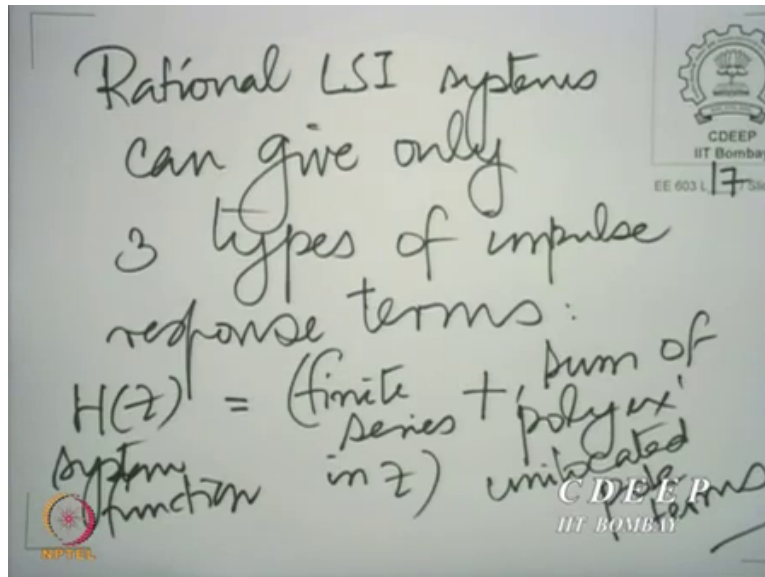 Rational LSI systems
can give only
3 types of impulse
response terms:
H(Z) = (finite series in Z) + sum of 'polyex' unilocated pole terms
system function
CDEEP
IIT Bombay
EE 603 L 17 / Slide
NPTEL
CDEEP
IIT BOMBAY